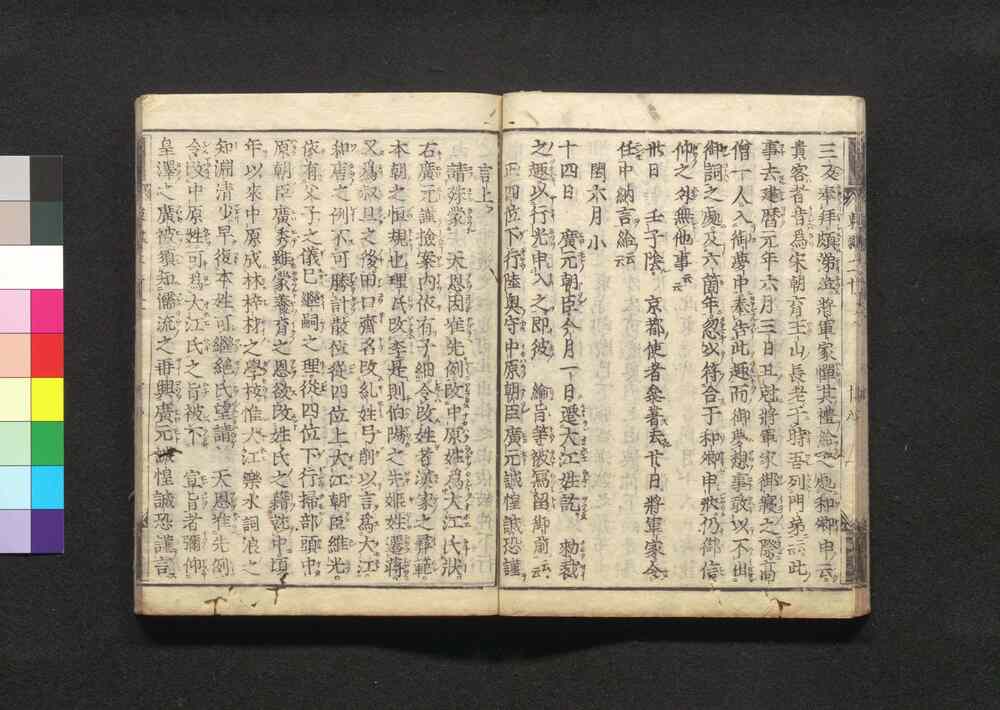 三反奉拜頗涕泣將軍家憚其禮給之處和卿申云
貴客者昔爲宋朝育王山長老于時吾列門弟云云此
事去建暦元年六月三日丑尅將軍家御寢之際高
僧一人入御夢中奉告此趣而御夢想事敢以不出
御詞之處及六箇年忽以符合于和卿申狀仍御信
仰之外無他事云云
卅日　壬子陰　京都使者參著去廿日將軍家令
任中納言給云云
閏六月小
十四日　廣元朝臣今月一日遷大江姓訖　勅裁
之趣以行光申入之即彼　綸旨等被寫留御前云云
正四位下行陸奥守中原朝臣廣元誠惶誠恐謹
言上
請殊蒙　天恩因准先例改中原姓爲大江氏狀
右廣元謹撿案内依有子細令改姓者漢家之彝範
本朝之恒規也理氏改李是則伯陽之先姫姓還蔣
又爲叔旦之後田口齊名改紀姓弓削以言爲大江
和唐之例不可勝計散位從四位上大江朝臣維光
依有父子之儀已繼嗣之理從四位下行掃部頭中
原朝臣廣季雖蒙養育之恩欲改姓氏之籍就中項
年以來中原成林梓材之學校惟大江樂水詞浪之
知淵清少早復本姓可繼絶氏望請　天恩准先例
令改中原姓可爲大江氏之旨被下　宣旨者彌仰
皇澤之廣被須知儒流之再興廣元誠惶誠恐謹言